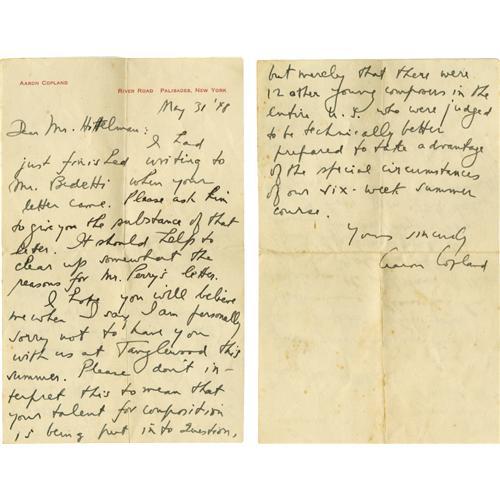 AARON COPLAND
RIVER ROAD PALISADES, NEW YORK
May 31 '48
Dear Mr. Hittelman:
I had
just finished writing to
Mr. Bedetti when your
letter came. Please ask him
to give you the substance of that
letter. It should help to
clear up somewhat the
reasons for Mr. Perry's letter.
I hope you will believe
me when I say I am personally
sorry not to have you
with us at Tanglewood this
summer. Please don't in-
terpret this to mean that
your talent for composition
is being put into question,
but merely that there were
12 other young composers in the
entire U.S. who were judged
to be technically better
prepared to take advantage
of the special circumstances
of our six-week summer
course.
Yours sincerely
Aaron Copland